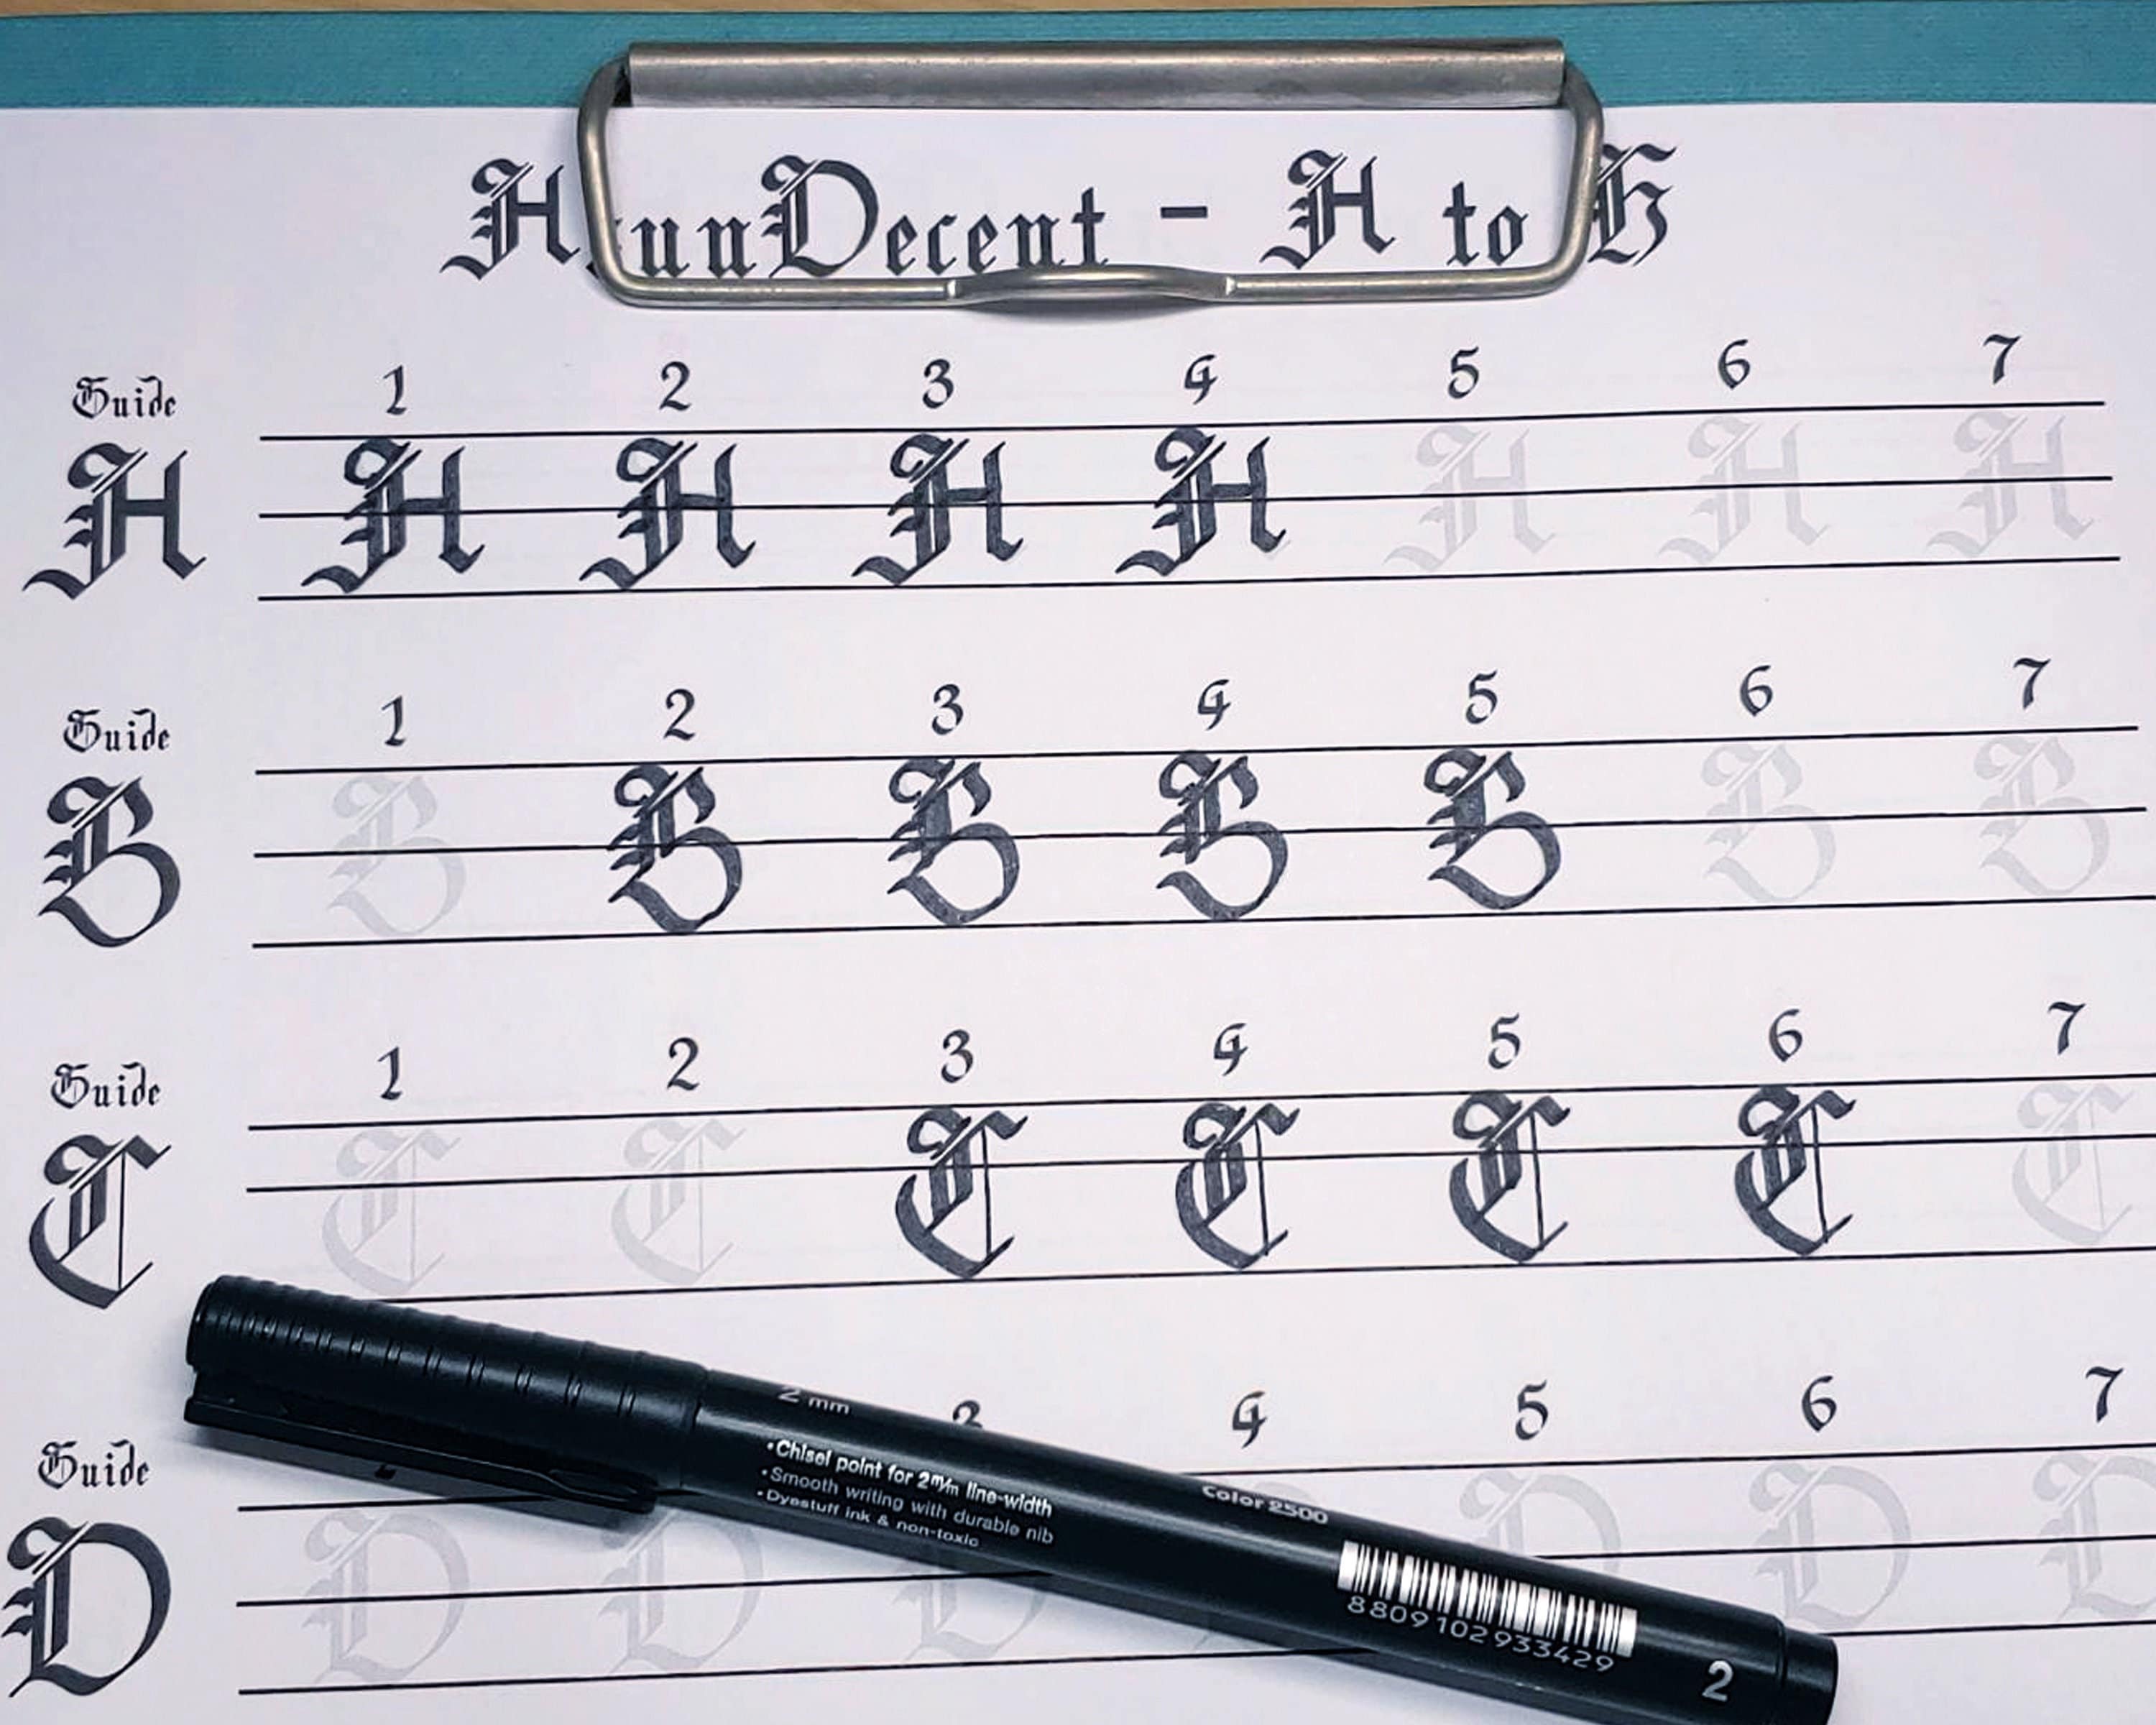 - A to H
Guide 1 2 3 4 5 6 7
A A A A A A A A
Guide 1 2 3 4 5 6 7
B B B B B B B B
Guide 1 2 3 4 5 6 7
C C C C C C C C
Guide 3 4 5 6 7
D D D D D D D
2 mm
•Chisel point for 2m/m line-width
•Smooth writing with durable nib
•Dyestuff ink & non-toxic
Color 2500
8809102933429
2